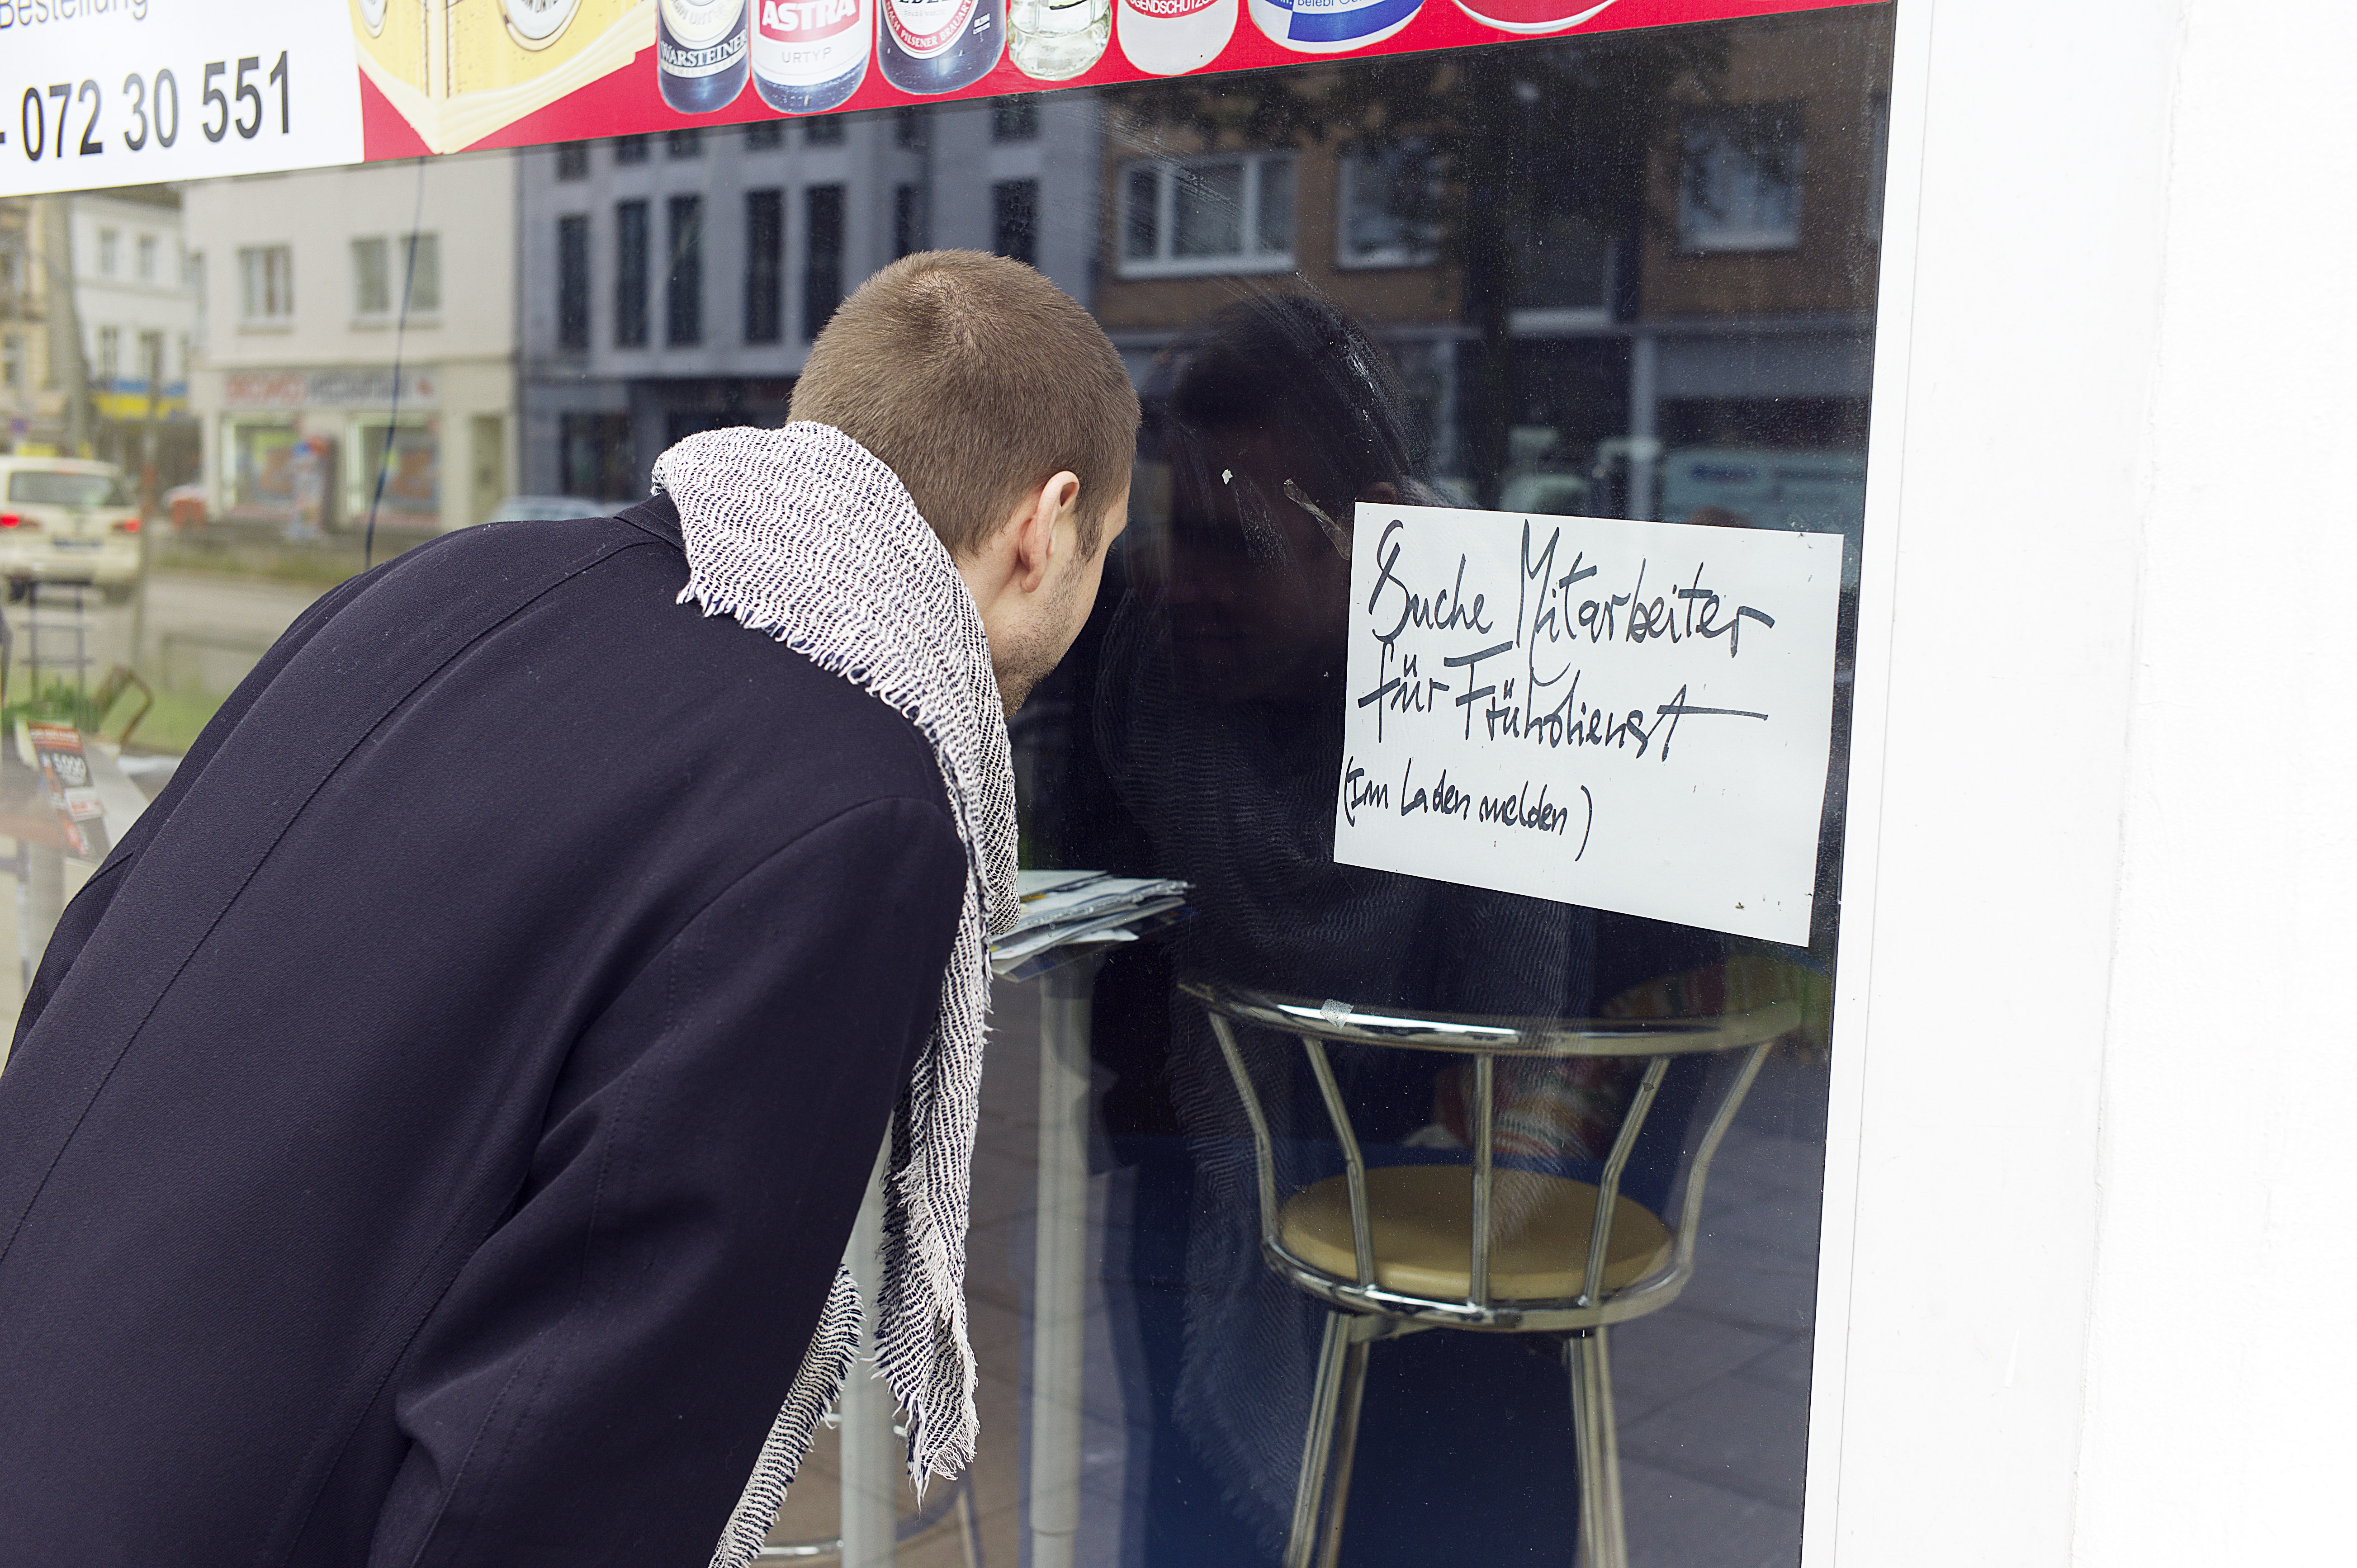 Bestellung
- 072 30 551
WARSTEINER
ASTRA
URTYP
PILSENER
Suche Mitarbeiter
für Frühdienst
(Im Laden melden)